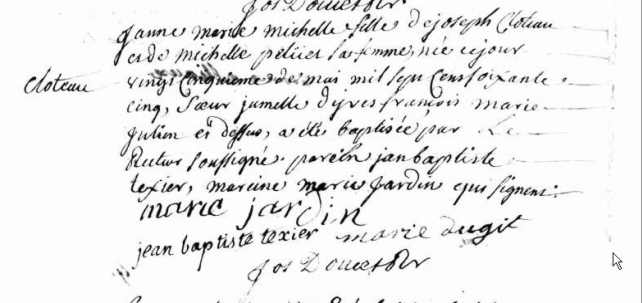 Jos Douetbr
Janne marie michelle fille de joseph Cloteau
et de michelle peluet sa femme, née ce jour
Cloteau
vingt cinquieme de mai mil sept cens soixante
cinq, Sœur jumelle d'yves francois marie
Julien ci dessus, a eté baptisée par Le
Recteur soussigné. parein jan baptiste
texier, mareine marie Jardin qui signent:
marie jardin
jean baptiste texier marie dugit
Jos